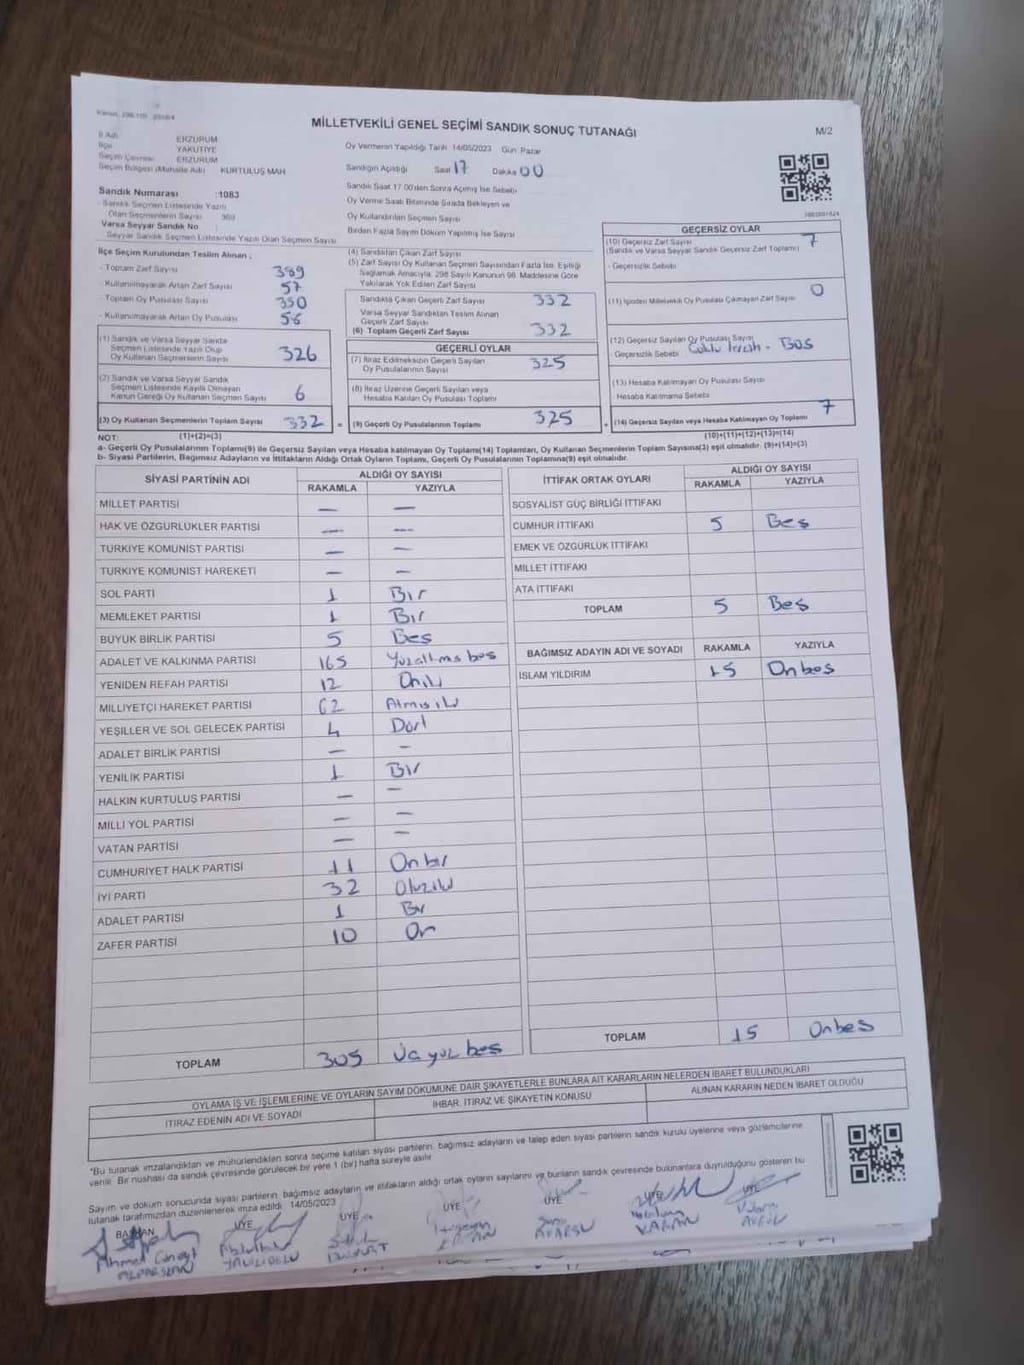 MİLLETVEKİLİ GENEL SEÇİMİ SANDIK SONUÇ TUTANAĞI
M/2
İl Adı ERZURUM
İlçe YAKUTİYE
Seçim Çevresi ERZURUM
Seçim Bölgesi (Mahalle Adı) KURTULUŞ MAH
Oy Vermenin Yapıldığı Tarih 14/05/2023 Gün Pazar
Sandığın Açıldığı Saat 17 Dakika 00
Sandık Saat 17:00'den Sonra Açılmış İse Sebebi
Oy Verme Saati Bitiminde Sırada Bekleyen ve
Oy Kullandırılan Seçmen Sayısı
Birden Fazla Sayım Döküm Yapılmış İse Sayısı
Sandık Numarası :1083
Sandık Seçmen Listesinde Yazılı
Olan Seçmenlerin Sayısı
Varsa Seyyar Sandık No :
Seyyar Sandık Seçmen Listesinde Yazılı Olan Seçmen Sayısı
İlçe Seçim Kurulundan Teslim Alınan ;
- Toplam Zarf Sayısı 389
- Kullanılmayarak Artan Zarf Sayısı 57
- Toplam Oy Pusulası Sayısı
- Kullanılmayarak Artan Oy Pusulası
(1) Sandık ve Varsa Seyyar Sandık
Seçmen Listesinde Yazılı Olup
Oy Kullanan Seçmenlerin Sayısı 326
(2) Sandık ve Varsa Seyyar Sandık
Seçmen Listesinde Kayıtlı Olmayan
Kanun Gereği Oy Kullanan Seçmen Sayısı 6
(3) Oy Kullanan Seçmenlerin Toplam Sayısı 332
(4) Sandıktan Çıkan Zarf Sayısı
(5) Zarf Sayısı Oy Kullanan Seçmen Sayısından Fazla İse, Eşitliği
Sağlamak Amacıyla, 298 Sayılı Kanunun 98. Maddesine Göre
Yakılarak Yok Edilen Zarf Sayısı
Sandıkta Çıkan Geçerli Zarf Sayısı 332
Varsa Seyyar Sandıktan Teslim Alınan
Geçerli Zarf Sayısı
(6) Toplam Geçerli Zarf Sayısı 332
GEÇERLİ OYLAR
(7) İtiraz Edilmeksizin Geçerli Sayılan
Oy Pusulalarının Sayısı 325
(8) İtiraz Üzerine Geçerli Sayılan veya
Hesaba Katılan Oy Pusulası Toplamı
= (9) Geçerli Oy Pusulalarının Toplamı 325
GEÇERSİZ OYLAR
(10) Geçersiz Zarf Sayısı 7
(Sandık ve Varsa Seyyar Sandık Geçersiz Zarf Toplamı)
- Geçersizlik Sebebi
(11) İçinden Milletvekili Oy Pusulası Çıkmayan Zarf Sayısı 0
(12) Geçersiz Sayılan Oy Pusulası Sayısı
- Geçersizlik Sebebi Çoklu tercih - BOŞ
(13) Hesaba Katılmayan Oy Pusulası Sayısı
- Hesaba Katılmama Sebebi
+ (14) Geçersiz Sayılan veya Hesaba Katılmayan Oy Toplamı 7
NOT: (1)+(2)=(3) (10)+(11)+(12)+(13)=(14)
a- Geçerli Oy Pusulalarının Toplamı(9) ile Geçersiz Sayılan veya Hesaba katılmayan Oy Toplamı(14) Toplamları, Oy Kullanan Seçmenlerin Toplam Sayısına(3) eşit olmalıdır. (9)+(14)=(3)
b- Siyasi Partilerin, Bağımsız Adayların ve İttifakların Aldığı Ortak Oyların Toplamı, Geçerli Oy Pusulalarının Toplamına(9) eşit olmalıdır.
SİYASİ PARTİNİN ADI ALDIĞI OY SAYISI
RAKAMLA YAZIYLA
MİLLET PARTİSİ — —
HAK VE ÖZGÜRLÜKLER PARTİSİ — —
TÜRKİYE KOMÜNİST PARTİSİ — —
TÜRKİYE KOMÜNİST HAREKETİ — —
SOL PARTİ 1 Bir
MEMLEKET PARTİSİ 1 Bir
BÜYÜK BİRLİK PARTİSİ 5 Beş
ADALET VE KALKINMA PARTİSİ 165 Yüzaltmışbeş
YENİDEN REFAH PARTİSİ 12 Oniki
MİLLİYETÇİ HAREKET PARTİSİ 62 Altmışiki
YEŞİLLER VE SOL GELECEK PARTİSİ 4 Dört
ADALET BİRLİK PARTİSİ — —
YENİLİK PARTİSİ 1 Bir
HALKIN KURTULUŞ PARTİSİ — —
MİLLİ YOL PARTİSİ — —
VATAN PARTİSİ — —
CUMHURİYET HALK PARTİSİ 11 Onbir
İYİ PARTİ 32 Otuziki
ADALET PARTİSİ 1 Bir
ZAFER PARTİSİ 10 On
TOPLAM 305 Üçyüzbeş
İTTİFAK ORTAK OYLARI ALDIĞI OY SAYISI
RAKAMLA YAZIYLA
SOSYALİST GÜÇ BİRLİĞİ İTTİFAKI
CUMHUR İTTİFAKI 5 Beş
EMEK VE ÖZGÜRLÜK İTTİFAKI
MİLLET İTTİFAKI
ATA İTTİFAKI
TOPLAM 5 Beş
BAĞIMSIZ ADAYIN ADI VE SOYADI RAKAMLA YAZIYLA
İSLAM YILDIRIM 15 Onbeş
TOPLAM 15 Onbeş
OYLAMA İŞ VE İŞLEMLERİNE VE OYLARIN SAYIM DÖKÜMÜNE DAİR ŞİKAYETLERLE BUNLARA AİT KARARLARIN NELERDEN İBARET BULUNDUKLARI
İTİRAZ EDENİN ADI VE SOYADI İHBAR, İTİRAZ VE ŞİKAYETİN KONUSU ALINAN KARARIN NEDEN İBARET OLDUĞU
*Bu tutanak imzalandıktan ve mühürlendikten sonra seçime katılan siyasi partilerin, bağımsız adayların ve talep eden siyasi partilerin sandık kurulu üyelerine veya gözlemcilerine
verilir. Bir nüshası da sandık çevresinde görülecek bir yere 1 (bir) hafta süreyle asılır.
Sayım ve döküm sonucunda siyasi partilerin, bağımsız adayların ve ittifakların aldığı ortak oyların sayılarını ve bunların sandık çevresinde bulunanlara duyrulduğunu gösteren bu
tutanak tarafımızdan düzenlenerek imza edildi. 14/05/2023
BAŞKAN ÜYE ÜYE ÜYE ÜYE ÜYE ÜYE